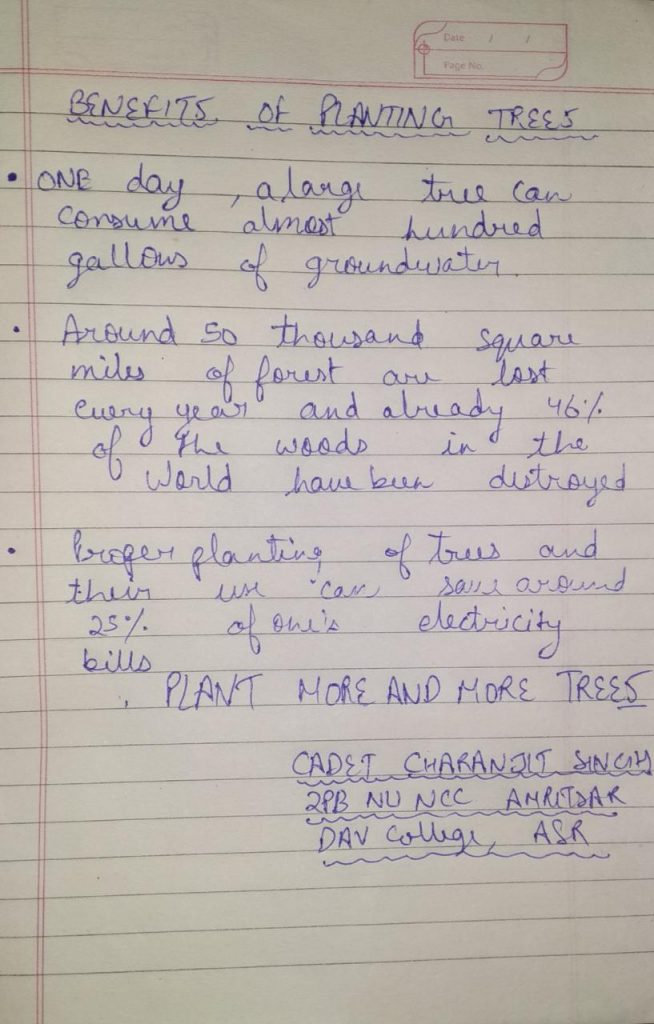 Date / /
Page No.
BENEFITS OF PLANTING TREES
• ONE day , a large tree can
consume almost hundred
gallows of groundwater.
• Around 50 thousand square
miles of forest are lost
every year and already 46%
of the woods in the
World have been distroyed
• Proper planting of trees and
their use can save around
25% of one's electricity
bills
. PLANT MORE AND MORE TREES
CADET CHARANJIT SINGH
2PB NU NCC AMRITSAR
DAV College, ASR